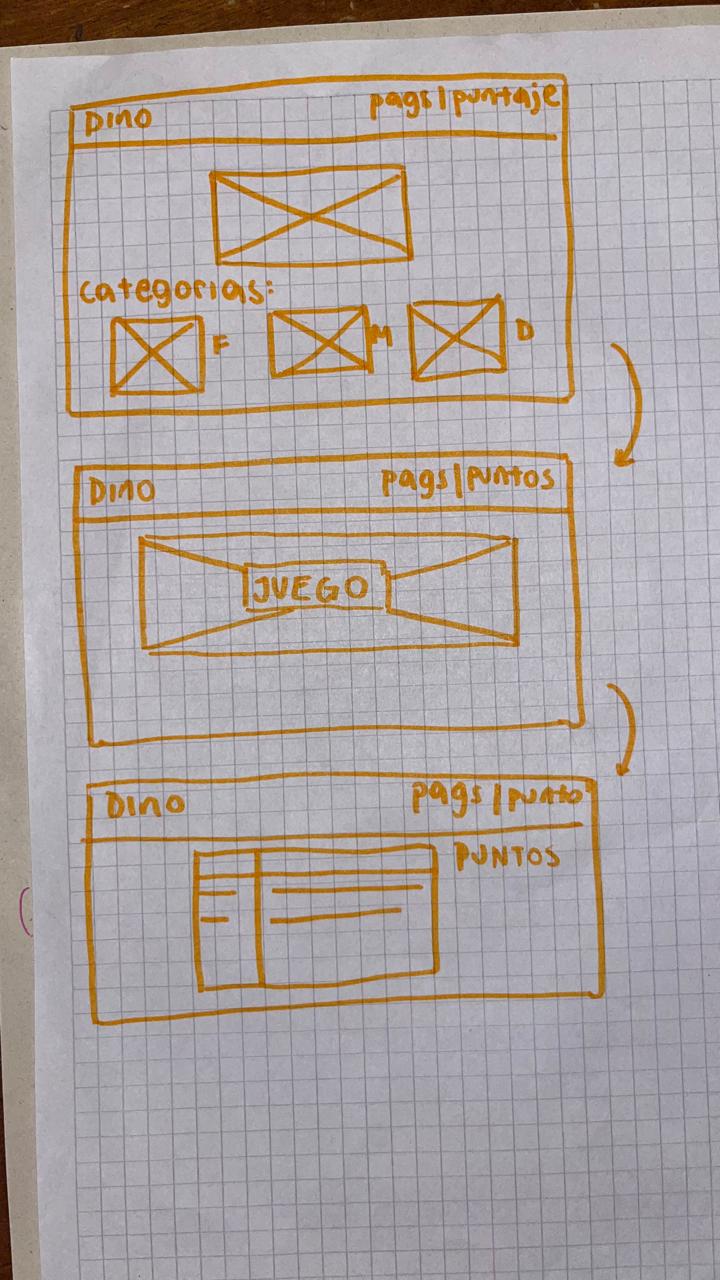 Dino
pags|puntaje
categorias:
F
M
D
Dino
pags|puntos
JUEGO
Dino
pags|punto
PUNTOS